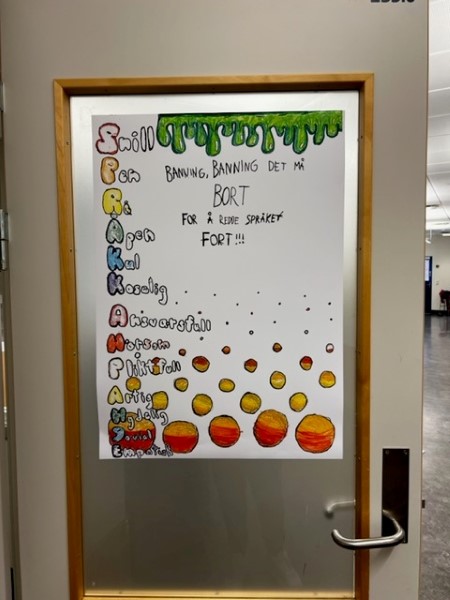 Snill
Pen
Rå
Åpen
Kul
Koselig
Ansvarsfull
Morsom
Pliktfull
Artig
Nydelig
Jovial
BANNING, BANNING DET MÅ
BORT
FOR Å REDDE SPRÅKET
FORT!!!